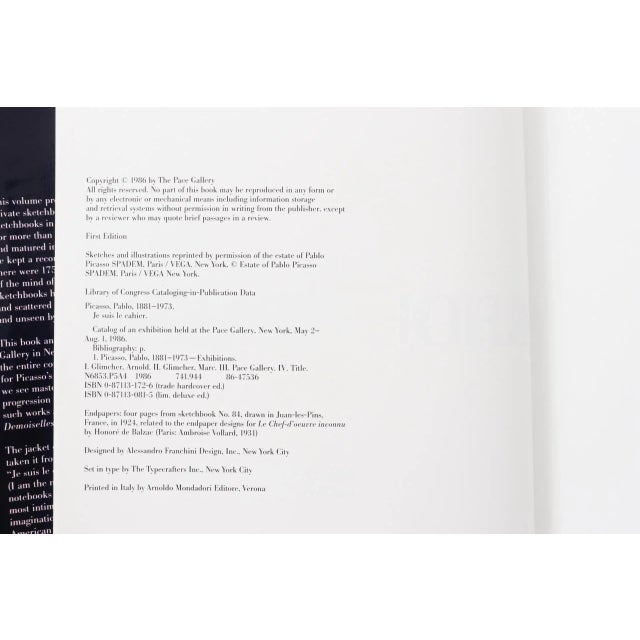 Copyright © 1986 by The Pace Gallery
All rights reserved. No part of this book may be reproduced in any form or
by any electronic or mechanical means including information storage
and retrieval systems without permission in writing from the publisher, except
by a reviewer who may quote brief passages in a review.
First Edition
Sketches and illustrations reprinted by permission of the estate of Pablo
Picasso SPADEM, Paris / VEGA, New York. © Estate of Pablo Picasso
SPADEM, Paris / VEGA New York.
Library of Congress Cataloging-in-Publication Data
Picasso, Pablo, 1881–1973.
Je suis le cahier.
Catalog of an exhibition held at the Pace Gallery, New York, May 2–
Aug. 1, 1986.
Bibliography: p.
1. Picasso, Pablo, 1881–1973—Exhibitions.
I. Glimcher, Arnold. II. Glimcher, Marc. III. Pace Gallery. IV. Title.
N6853.P5A4 1986 741.944 86-47536
ISBN 0-87113-172-6 (trade hardcover ed.)
ISBN 0-87113-081-5 (lim. deluxe ed.)
Endpapers: four pages from sketchbook No. 84, drawn in Juan-les-Pins,
France, in 1924, related to the endpaper designs for Le Chef-d'oeuvre inconnu
by Honoré de Balzac (Paris: Ambroise Vollard, 1931)
Designed by Alessandro Franchini Design, Inc., New York City
Set in type by The Typecrafters Inc., New York City
Printed in Italy by Arnoldo Mondadori Editore, Verona
his volume pr
ivate sketchb
etchbooks in
or more than
nd matured i
e kept a reco
here were 175
of the mind of
sketchbooks h
and scattered
and unseen by
This book an
Gallery in Ne
the entire co
for Picasso's
we see mast
progression
such works
Demoiselles
The jacket
taken it fro
"Je suis le
(I am the n
notebooks
most intim
imaginatio
American